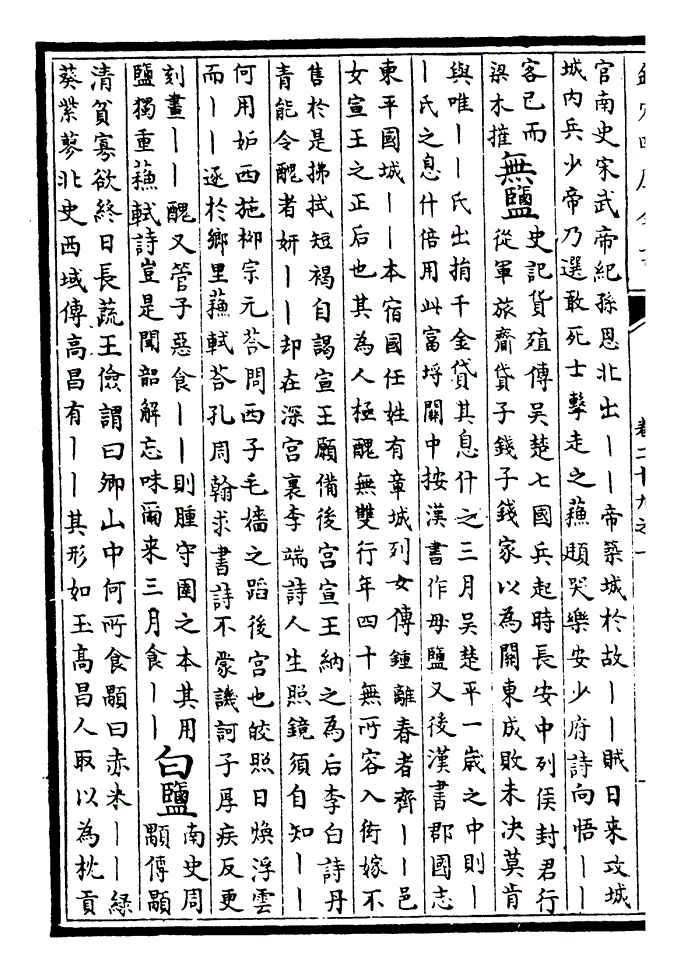 卷二十九之一
官南史宋武帝紀孫恩北出丨丨帝築城於故丨丨賊日来攻城
城内兵少帝乃選敢死士擊走之蘓頲哭樂安少府詩向悟丨丨
客已而
梁木摧
無鹽
史記貨殖傳吳楚七國兵起時長安中列侯封君行
從軍旅齎貸子錢子錢家以為關東成敗未決莫肯
與唯丨丨氏出捐千金貸其息什之三月吳楚平一歲之中則丨
丨氏之息什倍用此富埒關中按漢書作毋鹽又後漢書郡國志
東平國城丨丨本宿國任姓有章城列女傳鍾離春者齊丨丨邑
女宣王之正后也其為人極醜無雙行年四十無所容入衒嫁不
售於是拂拭短褐自謁宣王願備後宫宣王納之為后李白詩丹
青能令醜者妍丨丨却在深宫裏李端詩人生照鏡須自知丨丨
何用妒西施柳宗元荅問西子毛嬙之蹈後宫也皎照日煥浮雲
而丨丨逐於鄉里蘓軾荅孔周翰求書詩不蒙譏訶子厚疾反更
刻畫丨丨醜又管子惡食丨丨則腫守圉之本其用
鹽獨重蘓軾詩豈是聞韶解忘味邇来三月食丨丨
白鹽
南史周
顒傳顒
清貧寡欲終日長蔬王儉謂曰卿山中何所食顒曰赤米丨丨緑
葵紫蓼北史西域傳高昌有丨丨其形如玉高昌人取以為枕貢